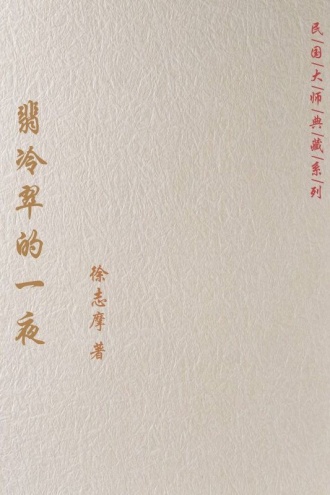 民国大师典藏系列
翡冷翠的一夜
徐志摩 著